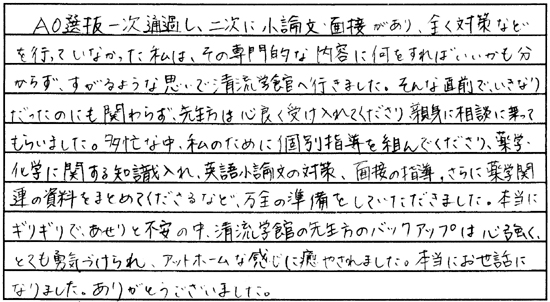 AO選抜一次通過し、二次に小論文・面接があり、全く対策など
を行っていなかった私は、その専門的な内容に何をすればいいかも分
からず、すがるような思いで清流学館へ行きました。そんな直前で、いきなり
だったのにも関わらず、先生方は心良く受け入れてくださり親身に相談に乗って
もらいました。多忙な中、私のために個別指導を組んでくださり、薬学・
化学に関する知識入れ、英語小論文の対策、面接の指導、さらに薬学関
連の資料をまとめてくださるなど、万全の準備をしていただきました。本当に
ギリギリで、あせりと不安の中、清流学館の先生方のバックアップは心強く、
とても勇気づけられ、アットホームな感じに癒やされました。本当にお世話に
なりました。ありがとうございました。